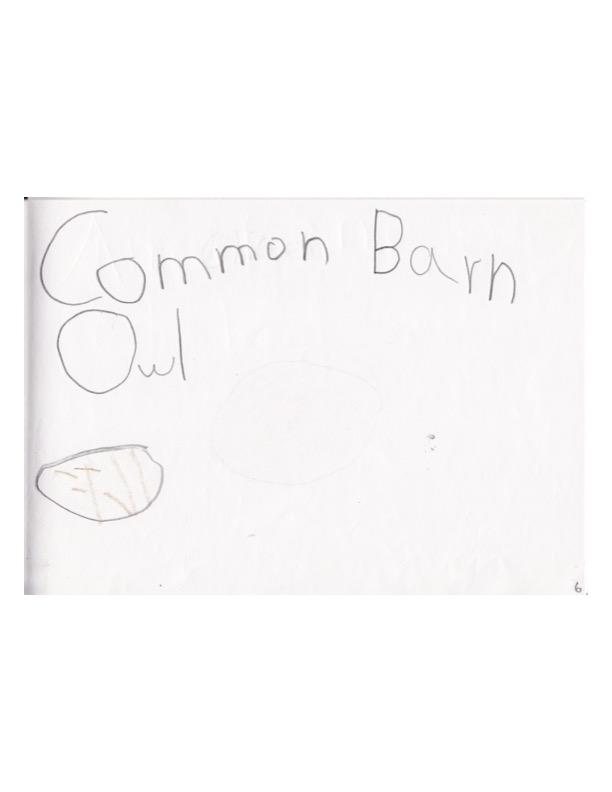 Common Barn
Owl
6